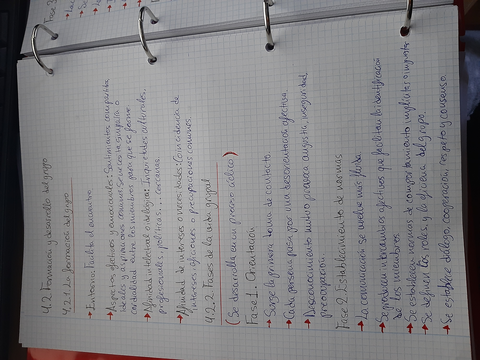 4.2 Formación y desarrollo del grupo
4.2.1 La formación del grupo
→ Entorno: facilita el encuentro
→ Aspectos afectivos y emocionales: Sentimientos compartidos,
ideales y aspiraciones comunes. Se necesita simpatía o
cordialidad entre los miembros para que se forme.
→ Afinidad intelectual o ideológica: Inquietudes culturales,
profesionales, políticas, ... cercanas.
→ Afinidad de intereses o necesidades: Coincidencia de
intereses, aficiones o preocupaciones comunes.
4.2.2 Fases de la vida grupal
(Se desarrolla en un proceso cíclico)
Fase 1. Orientación
→ Surge la primera toma de contacto.
→ Cada persona pasa por una desorientación afectiva.
→ Desconocimiento mutuo provoca angustia, inseguridad,
preocupación.
Fase 2. Establecimiento de normas
→ La comunicación se vuelve más fluida.
→ Se producen intercambios afectivos que facilitan la identificación
de los miembros
→ Se establecen normas de comportamiento, implícitas o
→ Se definen los roles, y la eficacia del grupo.
→ Se establece diálogo, cooperación, respeto y consenso.
Fase 3